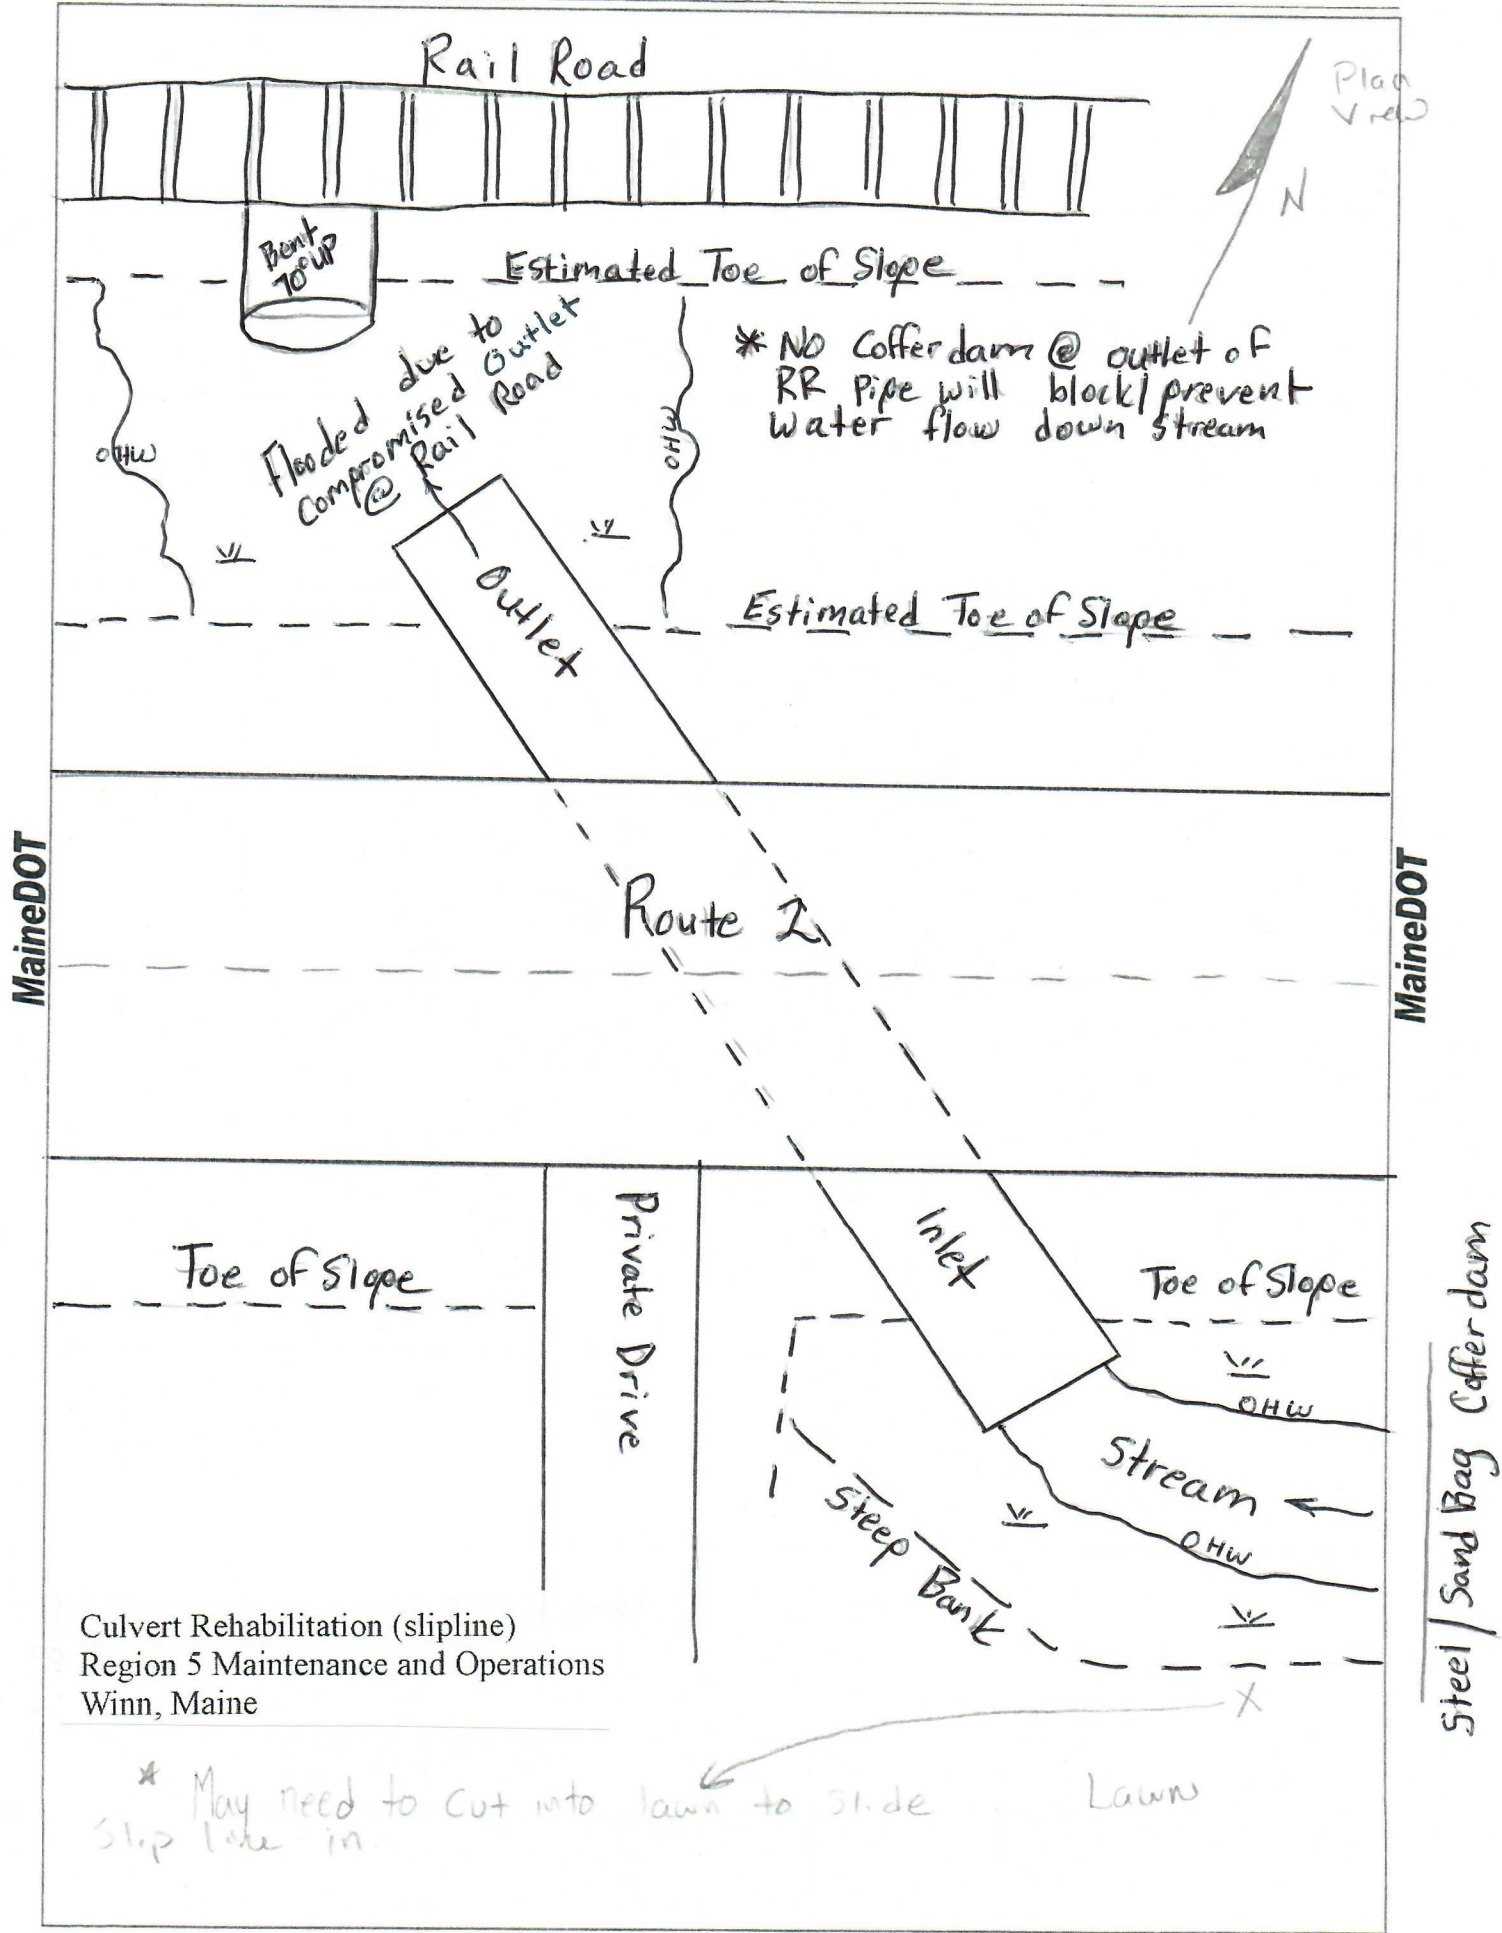 Rail Road
Plan
View
N
Bent
70° up
Estimated Toe of Slope
Flooded due to
Compromised Outlet
@ Rail Road
* No Cofferdam @ outlet of
RR Pipe will block/prevent
Water flow down stream
OHW
OHW
Outlet
Estimated Toe of Slope
MaineDOT
Route 2
MaineDOT
Toe of Slope
Private Drive
Inlet
Toe of Slope
OHW
Stream
OHW
Steep Bank
Steel/Sand Bag Cofferdam
Culvert Rehabilitation (slipline)
Region 5 Maintenance and Operations
Winn, Maine
X
* May need to cut into lawn to slide
Slip line in.
Lawn